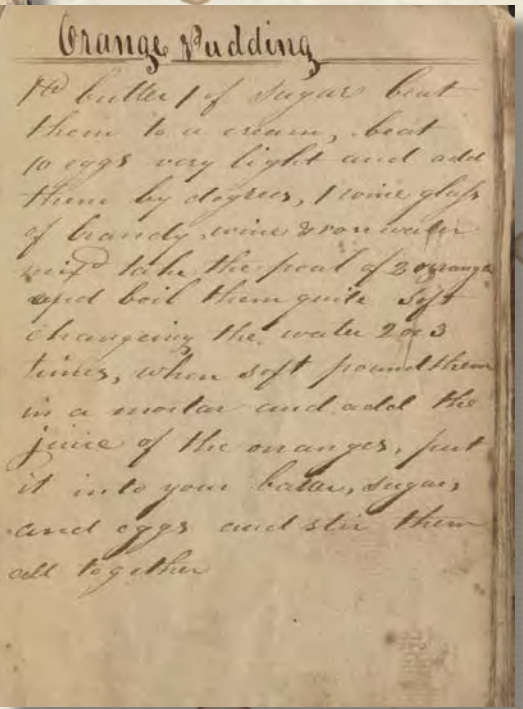 Orange Pudding
1 lb butter 1 of sugar beat
them to a cream, beat
10 eggs very light and add
them by degrees, 1 wine glass
of brandy, wine & rosewater
mix'd take the peal of 2 oranges
and boil them quite soft
changeing the water 2 or 3
times, when soft pound them
in a mortar and add the
juice of the oranges, put
it into your butter, sugar,
and eggs and stir them
all together